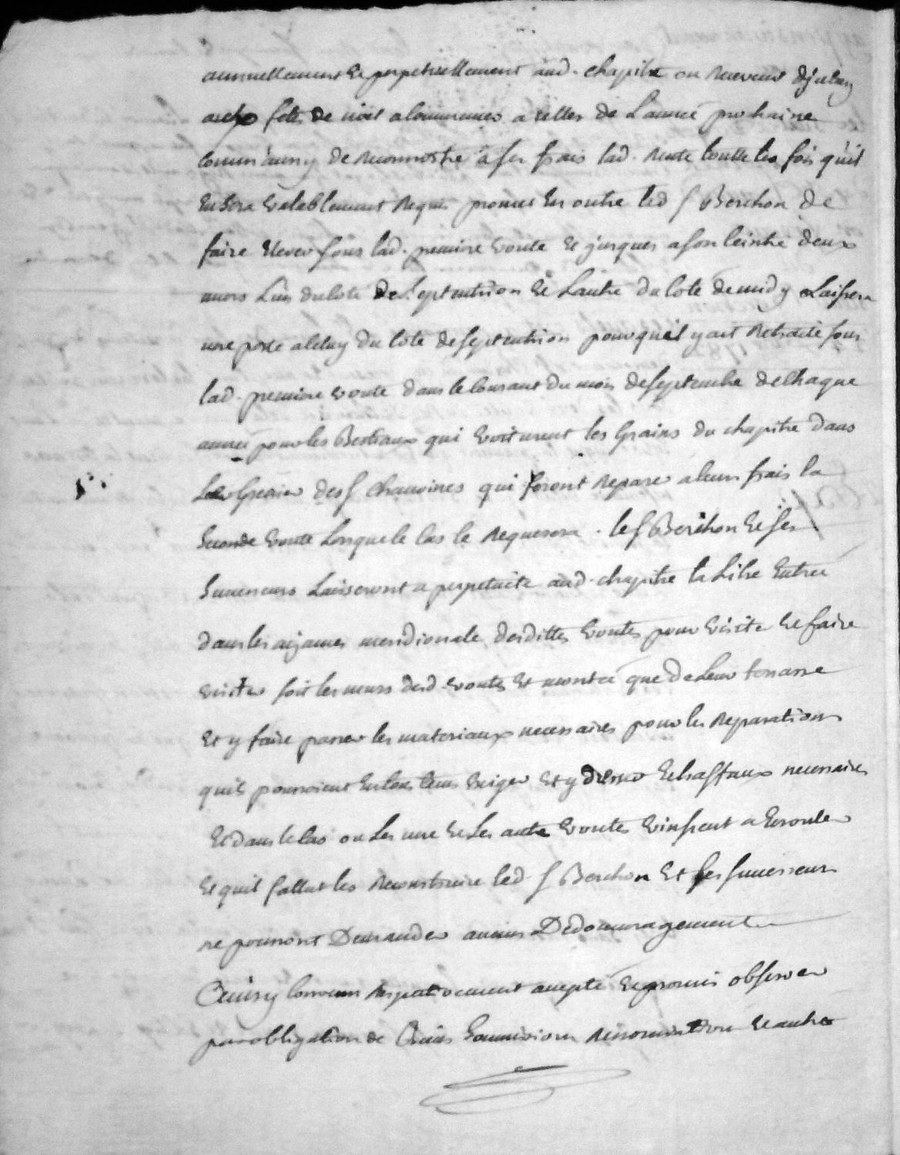 annuellement et perpetuellement aud. chapitre ou Receveur d'jceluy
aux fetes de noël a commancer a celles de L'année prochaine
comm'aussy de reconnoitre a ses frais lad. Rente touttes les fois qu'il
En sera valablement Requis promet En outre led s Berchon de
faire Elever sous lad. premiere voute Et jusques a son ceintre deux
murs L'un du coté de septentrion Et L'autre du coté de midy & Laissera
une porte a celuy du coté de septentrion pour qu'il y ait Retraite sous
lad. premiere voute dans le courant du mois de septembre de chaque
année pour les Bestiaux qui voiturent les Grains du chapitre dans
Les Grenier des s Chanoines qui feront Reparer a leurs frais la
seconde voute Lorsque le cas le Requerera. le s Berchon Et ses
successeurs Laisseront a perpetuité aud. chapitre la Libre Entrée
dans les meridionale desdittes voutes pour visiter Et faire
visiter soit les murs desd. voutes Et montée que de Leur terrasse
Et y faire passer les materiaux necessaires pour les Reparations
qu'ils pourroient En tous tems Exiger Et y dresser Echaffaux necessaires
Et dans le cas ou Les une Et Les autre voutes vinssent a Ecrouler
Et qu'il fallut les Reconstruire led. s Berchon Et ses successeurs
ne pourront Demander aucuns Dedommagement
Ainsy convenu Respectivement accepté Et promis observer
par obligation de Biens soumissions Renonciation Et autres